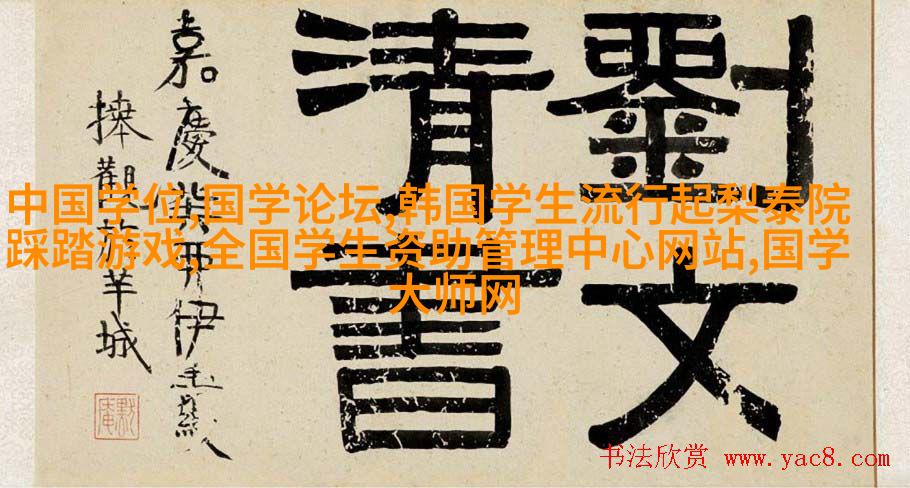 劉文
清書
嘉慶伊秉綬
捧觀於羊城
默庵
中国学位,国学论坛,韩国学生流行起梨泰院
踩踏游戏,全国学生资助管理中心网站,国学
大师网
书法欣赏 www.yac8.com